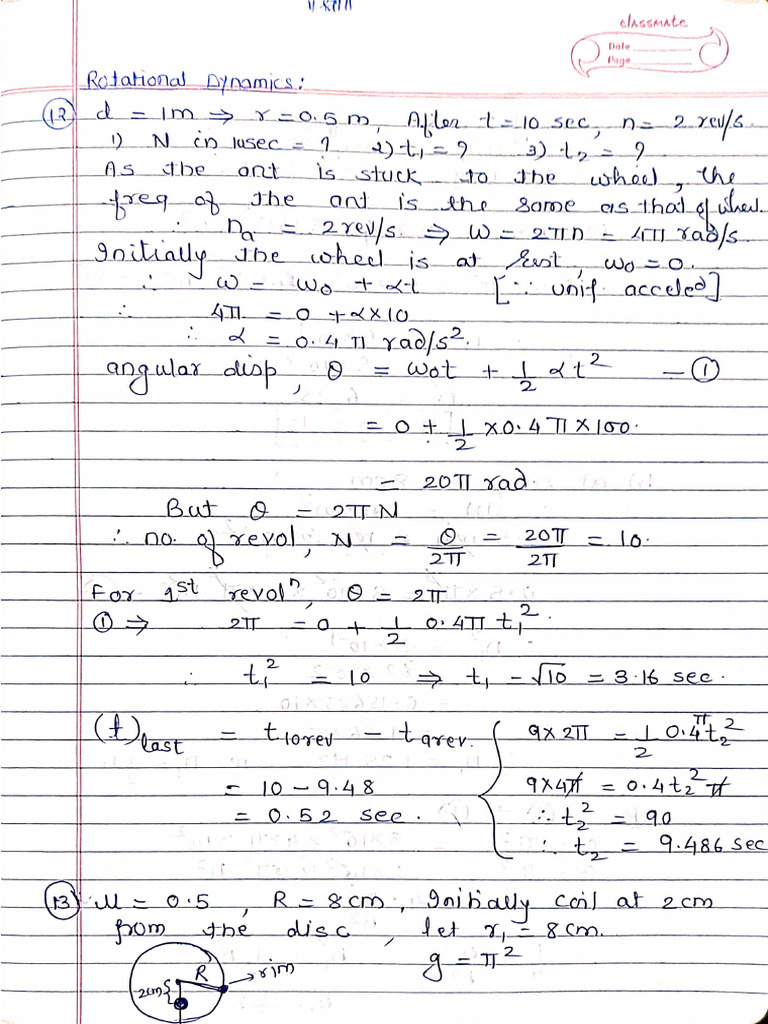 classmate
Date
Page
Rotational Dynamics:
(12) d = 1m ⇒ r = 0.5 m, After t = 10 sec, n = 2 rev/s.
1) N in 10sec = ? 2) t₁ = ? 3) t₂ = ?
As the ant is stuck to the wheel, the
freq of the ant is the same as that of wheel.
∴ nₐ = 2 rev/s. ⇒ ω = 2πn = 4π rad/s.
Initially the wheel is at rest, ω₀ = 0.
∴ ω = ω₀ + αt [∵ unif. acceleⁿ]
∴ 4π = 0 + α × 10
∴ α = 0.4 π rad/s².
angular disp, θ = ω₀t + 1/2 αt² — ①
= 0 + 1/2 × 0.4π × 100.
= 20π rad.
But θ = 2πN
∴ no. of revol, N = θ/2π = 20π/2π = 10.
For 1st revolⁿ, θ = 2π
① ⇒ 2π = 0 + 1/2 0.4π t₁².
∴ t₁² = 10 ⇒ t₁ = √10 = 3.16 sec.
(t)last = t10rev − t9rev.
= 10 − 9.48
= 0.52 sec.
9 × 2π = 1/2 0.4π t₂²
9 × 4π = 0.4 t₂² π
∴ t₂² = 90
∴ t₂ = 9.486 sec
(13) μ = 0.5, R = 8cm, Initially coin at 2cm
from the disc, let r₁ = 8 cm.
g = π²
R
rim
2cm